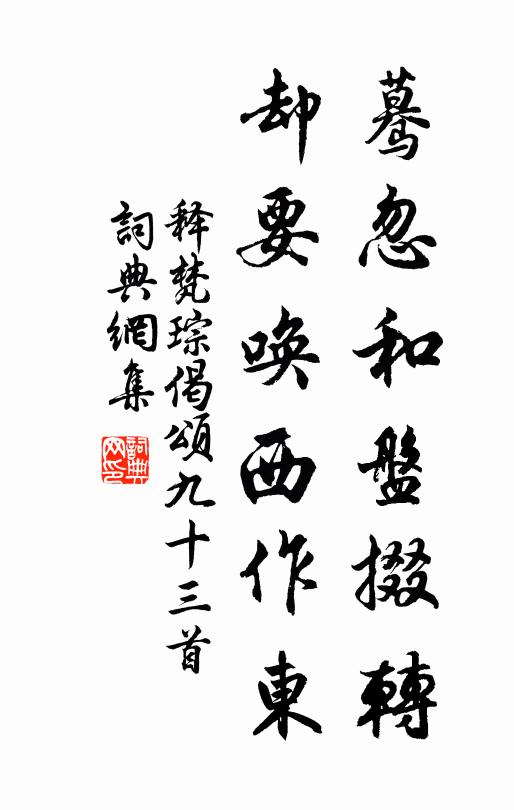 驀忽和盤掇轉
却要喚西作東
释梵琮偈頌九十三首
詞典網集
詞典網印